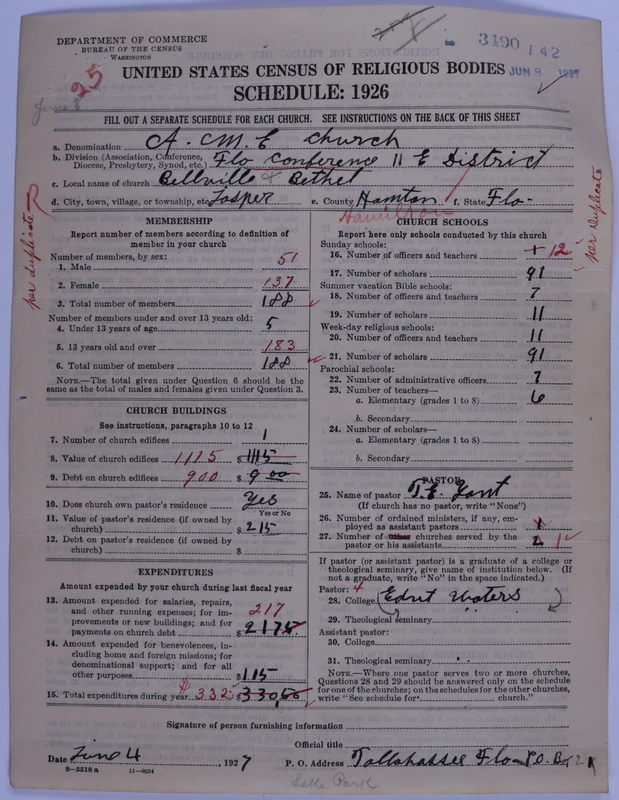 DEPARTMENT OF COMMERCE
BUREAU OF THE CENSUS
WASHINGTON
3190 142
JUN 8 1927
25
June 8
UNITED STATES CENSUS OF RELIGIOUS BODIES
SCHEDULE: 1926
FILL OUT A SEPARATE SCHEDULE FOR EACH CHURCH. SEE INSTRUCTIONS ON THE BACK OF THIS SHEET
a. Denomination A. C M. E Church
b. Division (Association, Conference, Diocese, Presbytery, Synod, etc.) Flo Conference 11 E District
c. Local name of church Bellville & Bethel
d. City, town, village, or township, etc. Jasper e. County Hamton f. State Flo-
Hamilton
per duplicate
per duplicate
MEMBERSHIP
Report number of members according to definition of member in your church
Number of members, by sex:
1. Male 51
2. Female 137
3. Total number of members 188
Number of members under and over 13 years old:
4. Under 13 years of age 5
5. 13 years old and over 183
6. Total number of members 188
NOTE.—The total given under Question 6 should be the same as the total of males and females given under Question 3.
CHURCH BUILDINGS
See instructions, paragraphs 10 to 12
7. Number of church edifices 1
8. Value of church edifices 1115 $ 1115
9. Debt on church edifices 900 $ 9 00
10. Does church own pastor's residence Yes
Yes or No
11. Value of pastor's residence (if owned by church) $ 215
12. Debt on pastor's residence (if owned by church) $
EXPENDITURES
Amount expended by church during last fiscal year
13. Amount expended for salaries, repairs, and other running expenses; for improvements or new buildings; and for payments on church debt 217 $ 2175
14. Amount expended for benevolences, including home and foreign missions; for denominational support; and for all other purposes $ 115
15. Total expenditures during year $332 $ 330,50
CHURCH SCHOOLS
Report here only schools conducted by this church
Sunday schools:
16. Number of officers and teachers 12
17. Number of scholars 91
Summer vacation Bible schools:
18. Number of officers and teachers 7
19. Number of scholars 11
Week-day religious schools:
20. Number of officers and teachers 11
21. Number of scholars 91
Parochial schools:
22. Number of administrative officers 7
23. Number of teachers—
a. Elementary (grades 1 to 8) 6
b. Secondary
24. Number of scholars—
a. Elementary (grades 1 to 8)
b. Secondary
PASTOR
25. Name of pastor T. E. Gant
(If church has no pastor, write "None")
26. Number of ordained ministers, if any, employed as assistant pastors 1
27. Number of other churches served by the pastor or his assistants 2 1
If pastor (or assistant pastor) is a graduate of a college or theological seminary, give name of institution below. (If not a graduate, write "No" in the space indicated.)
Pastor: 4
28. College Edwt Waters
29. Theological seminary
Assistant pastor:
30. College
31. Theological seminary
NOTE.—Where one pastor serves two or more churches, Questions 28 and 29 should be answered only on the schedule for one of the churches; on the schedules for the other churches, write "See schedule for church."
Signature of person furnishing information
Official title
Date June 4, 1927
P. O. Address Tallahassee Flo P.O. Box 21
8—5518 a 11—9084